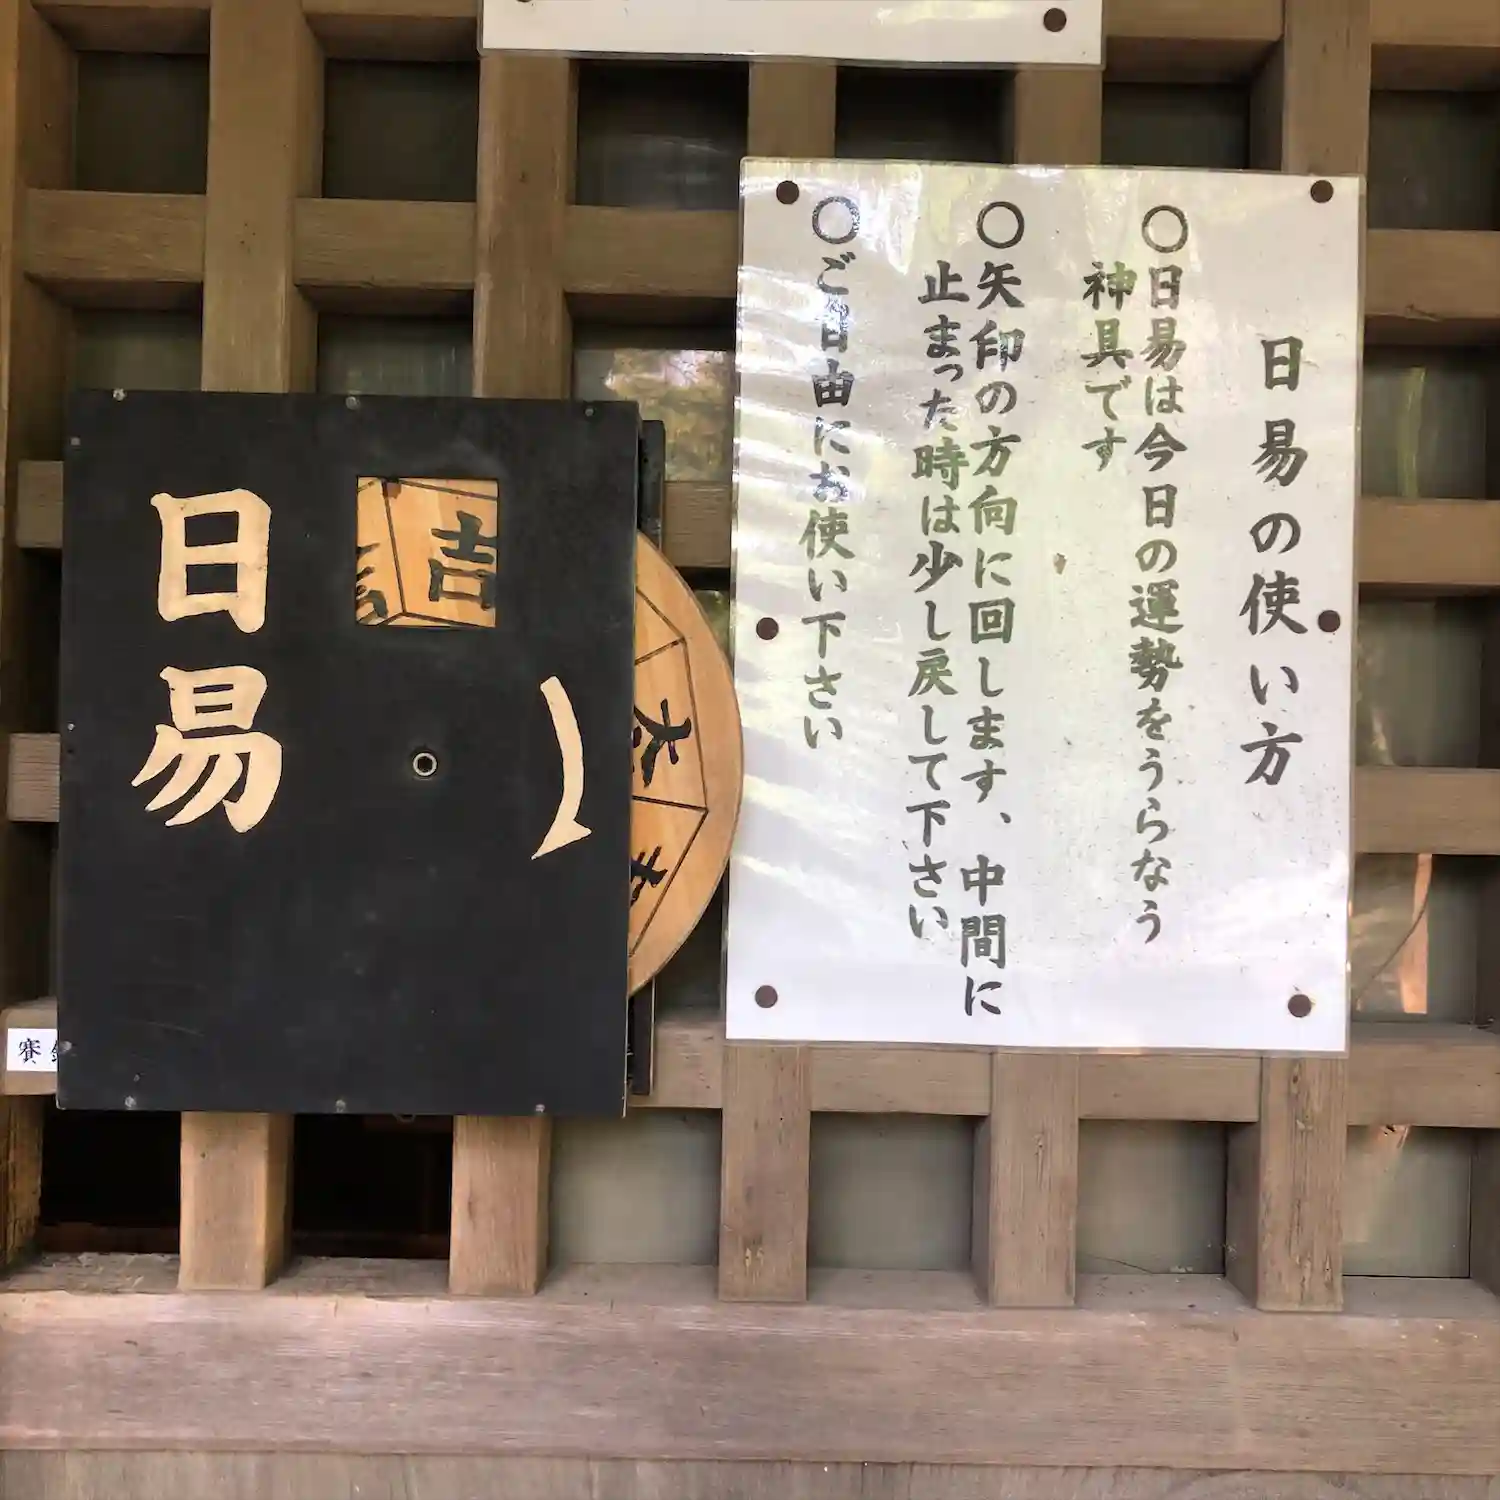 日易の使い方
〇日易は今日の運勢をうらなう
神具です
〇矢印の方向に回します、中間に
止まった時は少し戻して下さい
〇ご自由にお使い下さい
日易
吉
賽